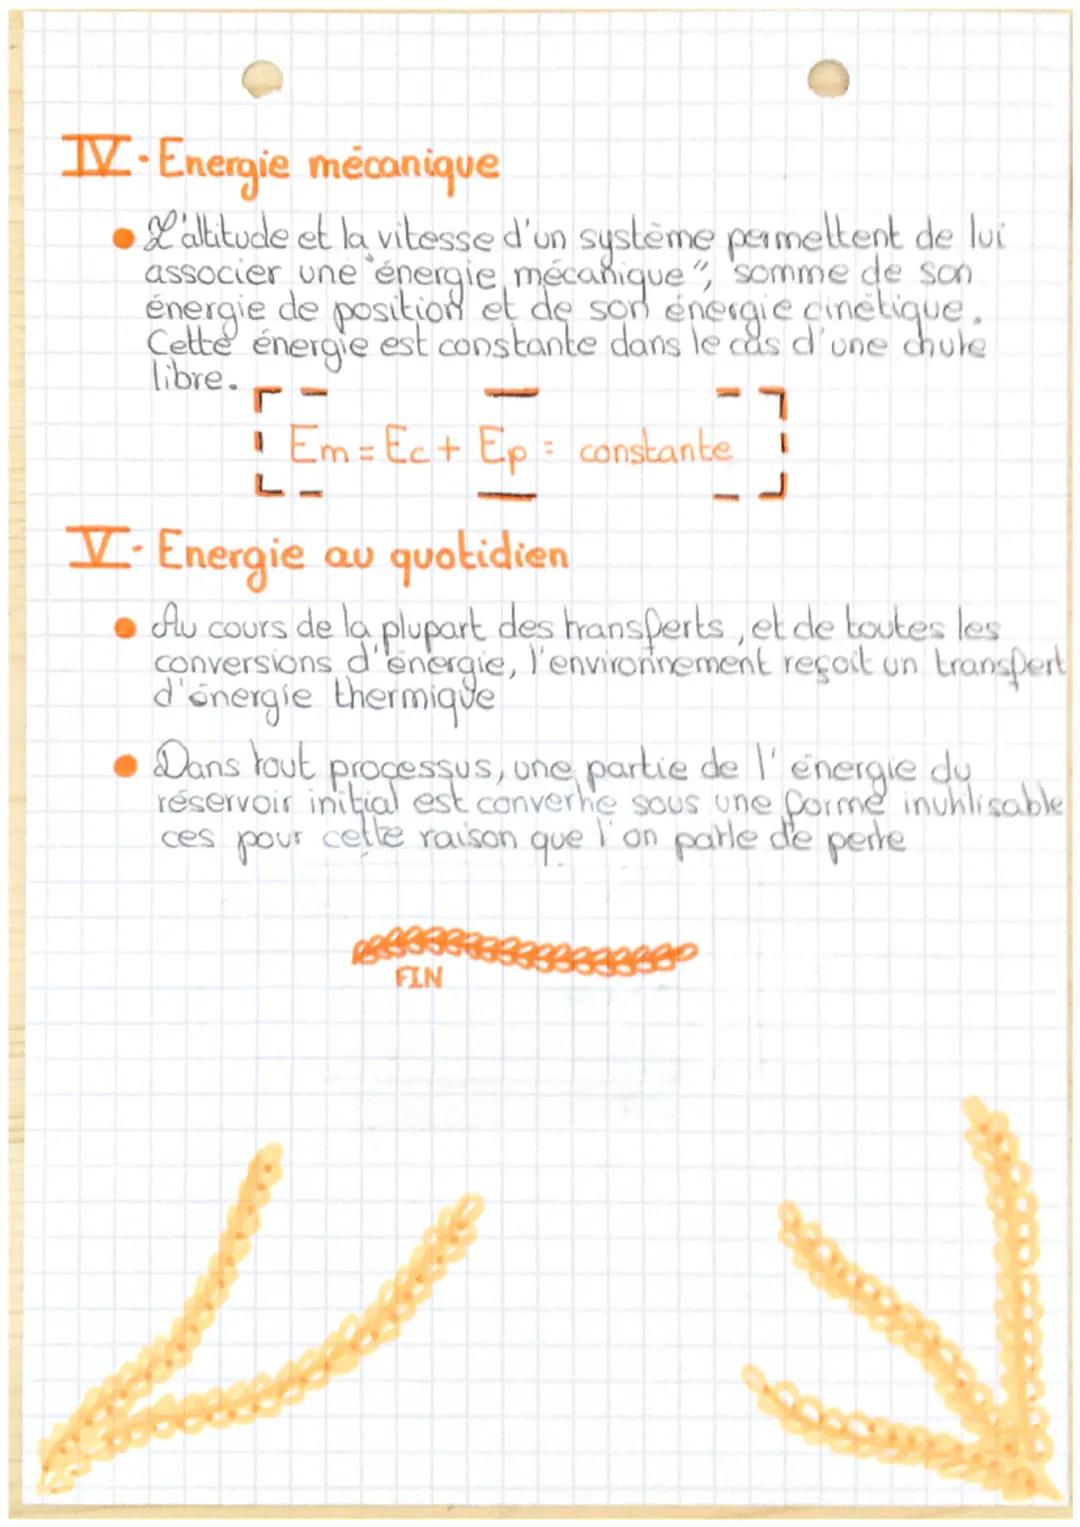 IV. Energie mécanique
L'altitude et la vitesse d'un système permettent de lui
associer une "énergie mécanique", somme de son
énergie de position et de son énergie cinétique.
Cette énergie est constante dans le cas d'une chute
libre.
Em = Ec + Ep = constante
V. Energie au quotidien
Au cours de la plupart des transferts, et de toutes les
conversions d'énergie, l'environnement reçoit un transfert
d'énergie thermique
Dans tout processus, une partie de l'énergie du
réservoir initial est convertie sous une forme inutilisable
ces pour cette raison que l'on parle de perte
FIN